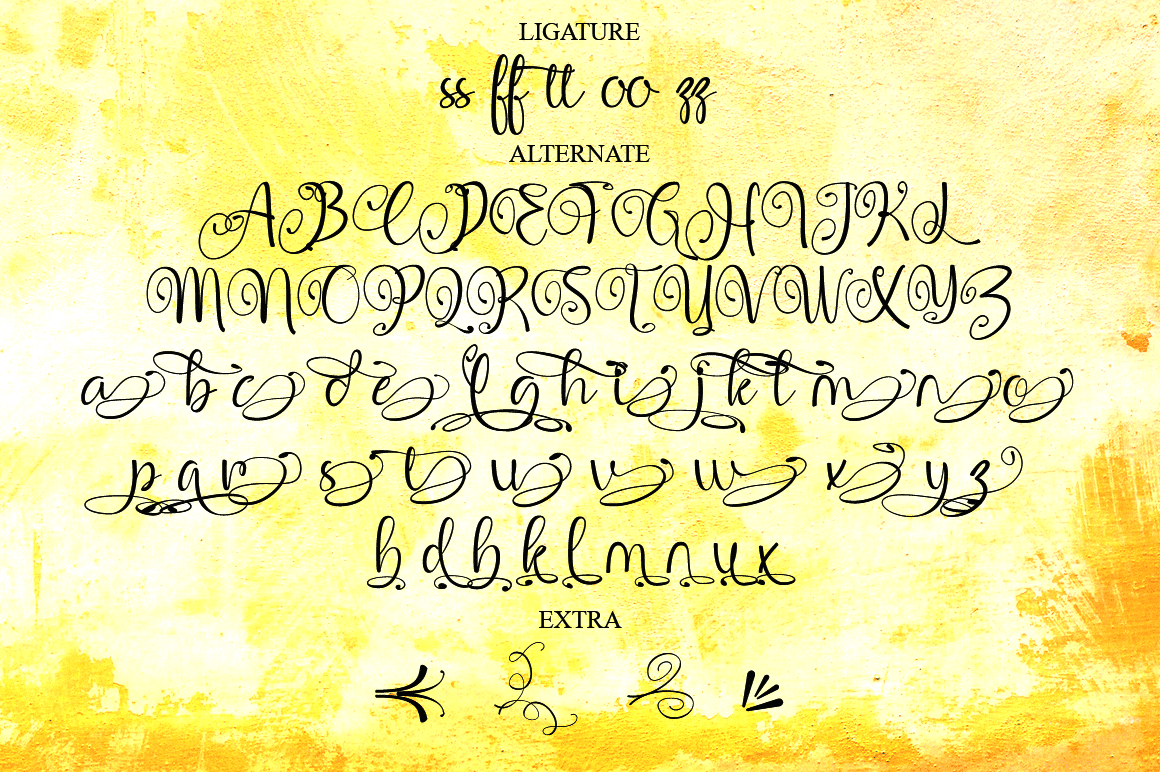 LIGATURE
ss ff tt oo zz
ALTERNATE
A B C D E F G H I J K L
M N N O P Q R S T U V W X Y Z
a b c d e f g h i j k l m n o
p q r s t u v w x y z
b d h k l m n u x
EXTRA